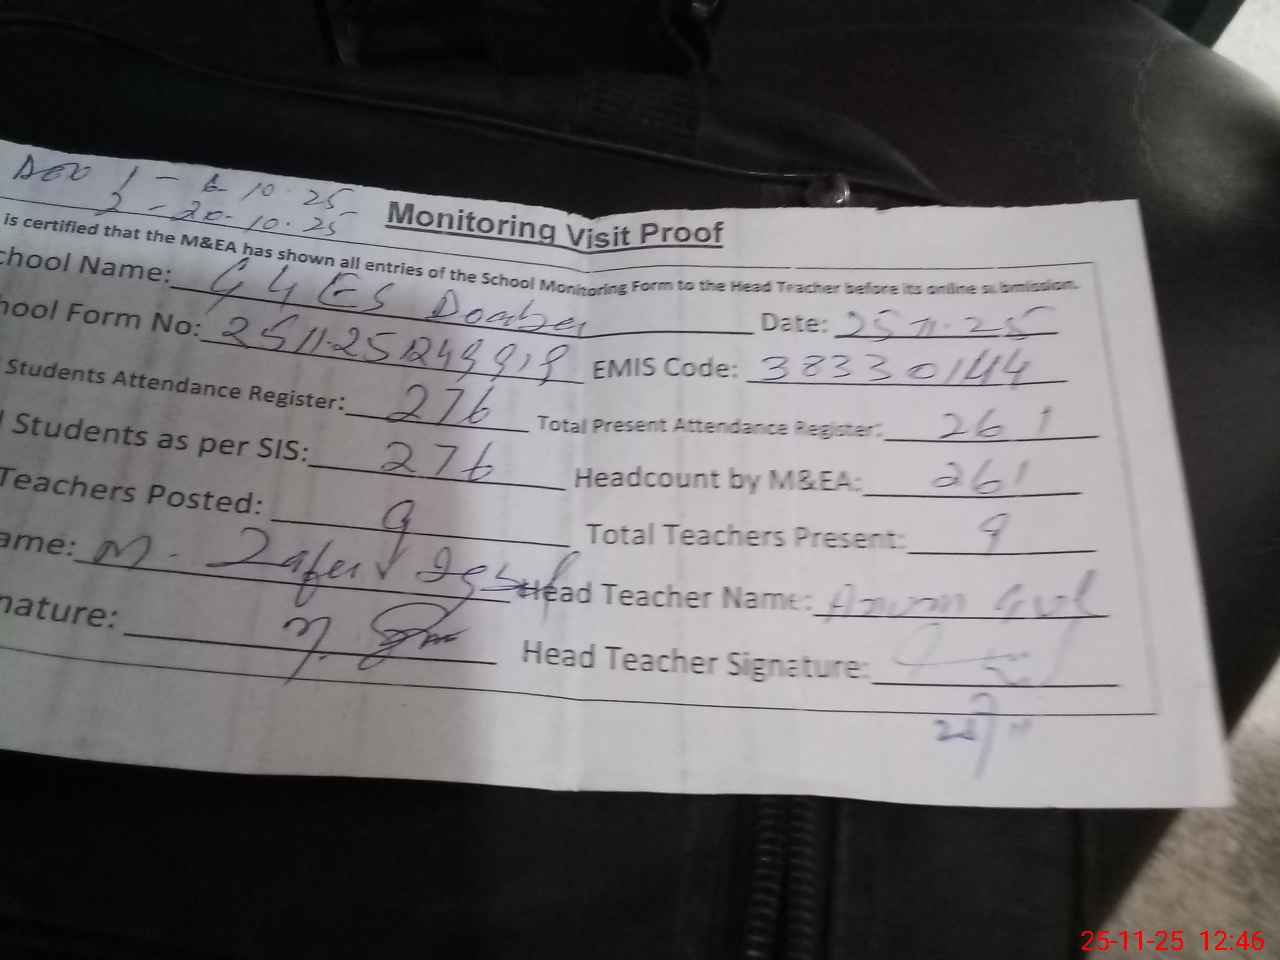 AEO 1 - 6-10.25
2 - 20-10.25
Monitoring Visit Proof
is certified that the M&EA has shown all entries of the School Monitoring Form to the Head Teacher before its online submission.
chool Name: GGES Doaber Date: 25 11.25
hool Form No: EMIS Code: 38330144
Students Attendance Register: 276 Total Present Attendance Register: 261
l Students as per SIS: 276 Headcount by M&EA: 261
Teachers Posted: 9 Total Teachers Present: 9
ame: M. Zafar Iqbal Head Teacher Name: Gul
nature: Head Teacher Signature:
25-11-25 12:46